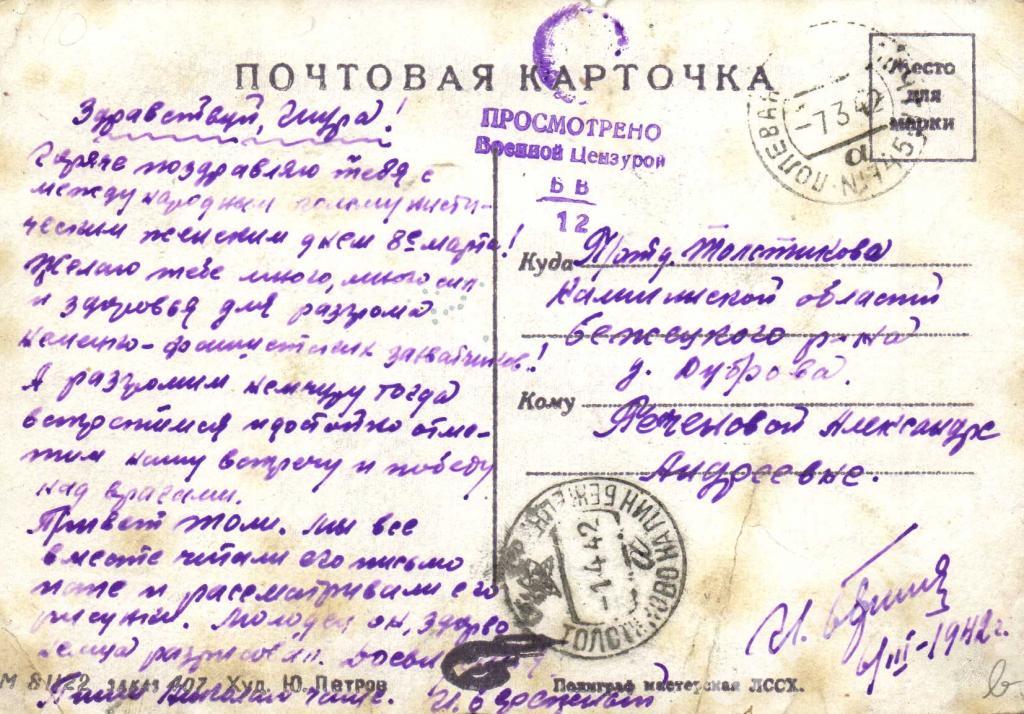 ПОЧТОВАЯ КАРТОЧКА
Место
для
марки
ПОЛЕВАЯ
-7 3 42
а
ПРОСМОТРЕНО
Военной Цензурой
Б В
12
Здравствуй, Шура!
Горяче поздравляю тебя с
между народным коммунисти-
ческим женским днем 8е марта!
Желаю тебе много, много сил
и здоровья для разгрома
немецко-фашистских захватчиков!
А разгромим немчуру тогда
встретимся и достойно отме-
тим нашу встречу и победу
над врагами.
Привет Толи. Мы все
вместе читали его письмо
папе и рассматривали его
рисунки. Молодец он, здорово
немца разрисовал.
Пиши чаще.
Куда П/отд. Толстиково
Калининской области
Бежецкого р-на
д. Дуброва.
Кому Печеновой Александре
Андреевне.
КАЛИНИН БЕЖЕЦК
-1 4 42
а
И.
6/III-1942г.
М 81122 заказ 407 Худ. Ю. Петров
Полиграф мастерская ЛССХ.